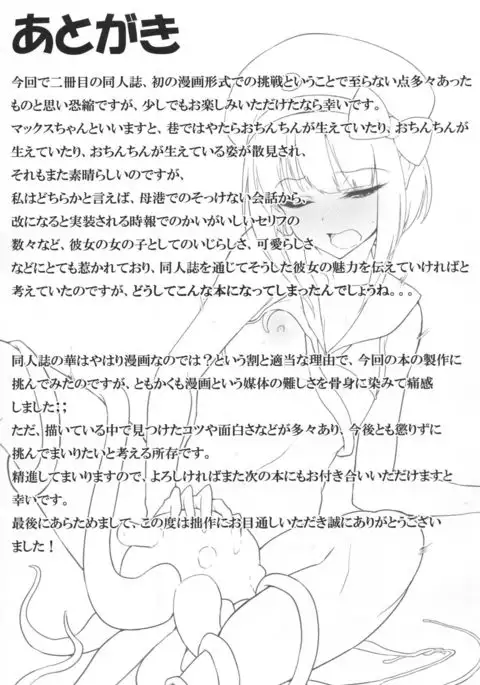 あとがき
今回で二冊目の同人誌、初の漫画形式での挑戦ということで至らない点多々あった
ものと思い恐縮ですが、少しでもお楽しみいただけたなら幸いです。
マックスちゃんといいますと、巷ではやたらおちんちんが生えていたり、おちんちんが
生えていたり、おちんちんが生えている姿が散見され、
それもまた素晴らしいのですが、
私はどちらかと言えば、母港でのそっけない会話から、
改になると実装される時報でのかいがいしいセリフの
数々など、彼女の女の子としてのいじらしさ、可愛らしさ、
などにとても惹かれており、同人誌を通じてそうした彼女の魅力を伝えていければと
考えていたのですが、どうしてこんな本になってしまったんでしょうね。。。
同人誌の華はやはり漫画なのでは？という割と適当な理由で、今回の本の製作に
挑んでみたのですが、ともかくも漫画という媒体の難しさを骨身に染みて痛感
しました；；
ただ、描いている中で見つけたコツや面白さなどが多々あり、今後とも懲りずに
挑んでまいりたいと考える所存です。
精進してまいりますので、よろしければまた次の本にもお付き合いいただけますと
幸いです。
最後にあらためまして、この度は拙作にお目通しいただき誠にありがとうござい
ました！